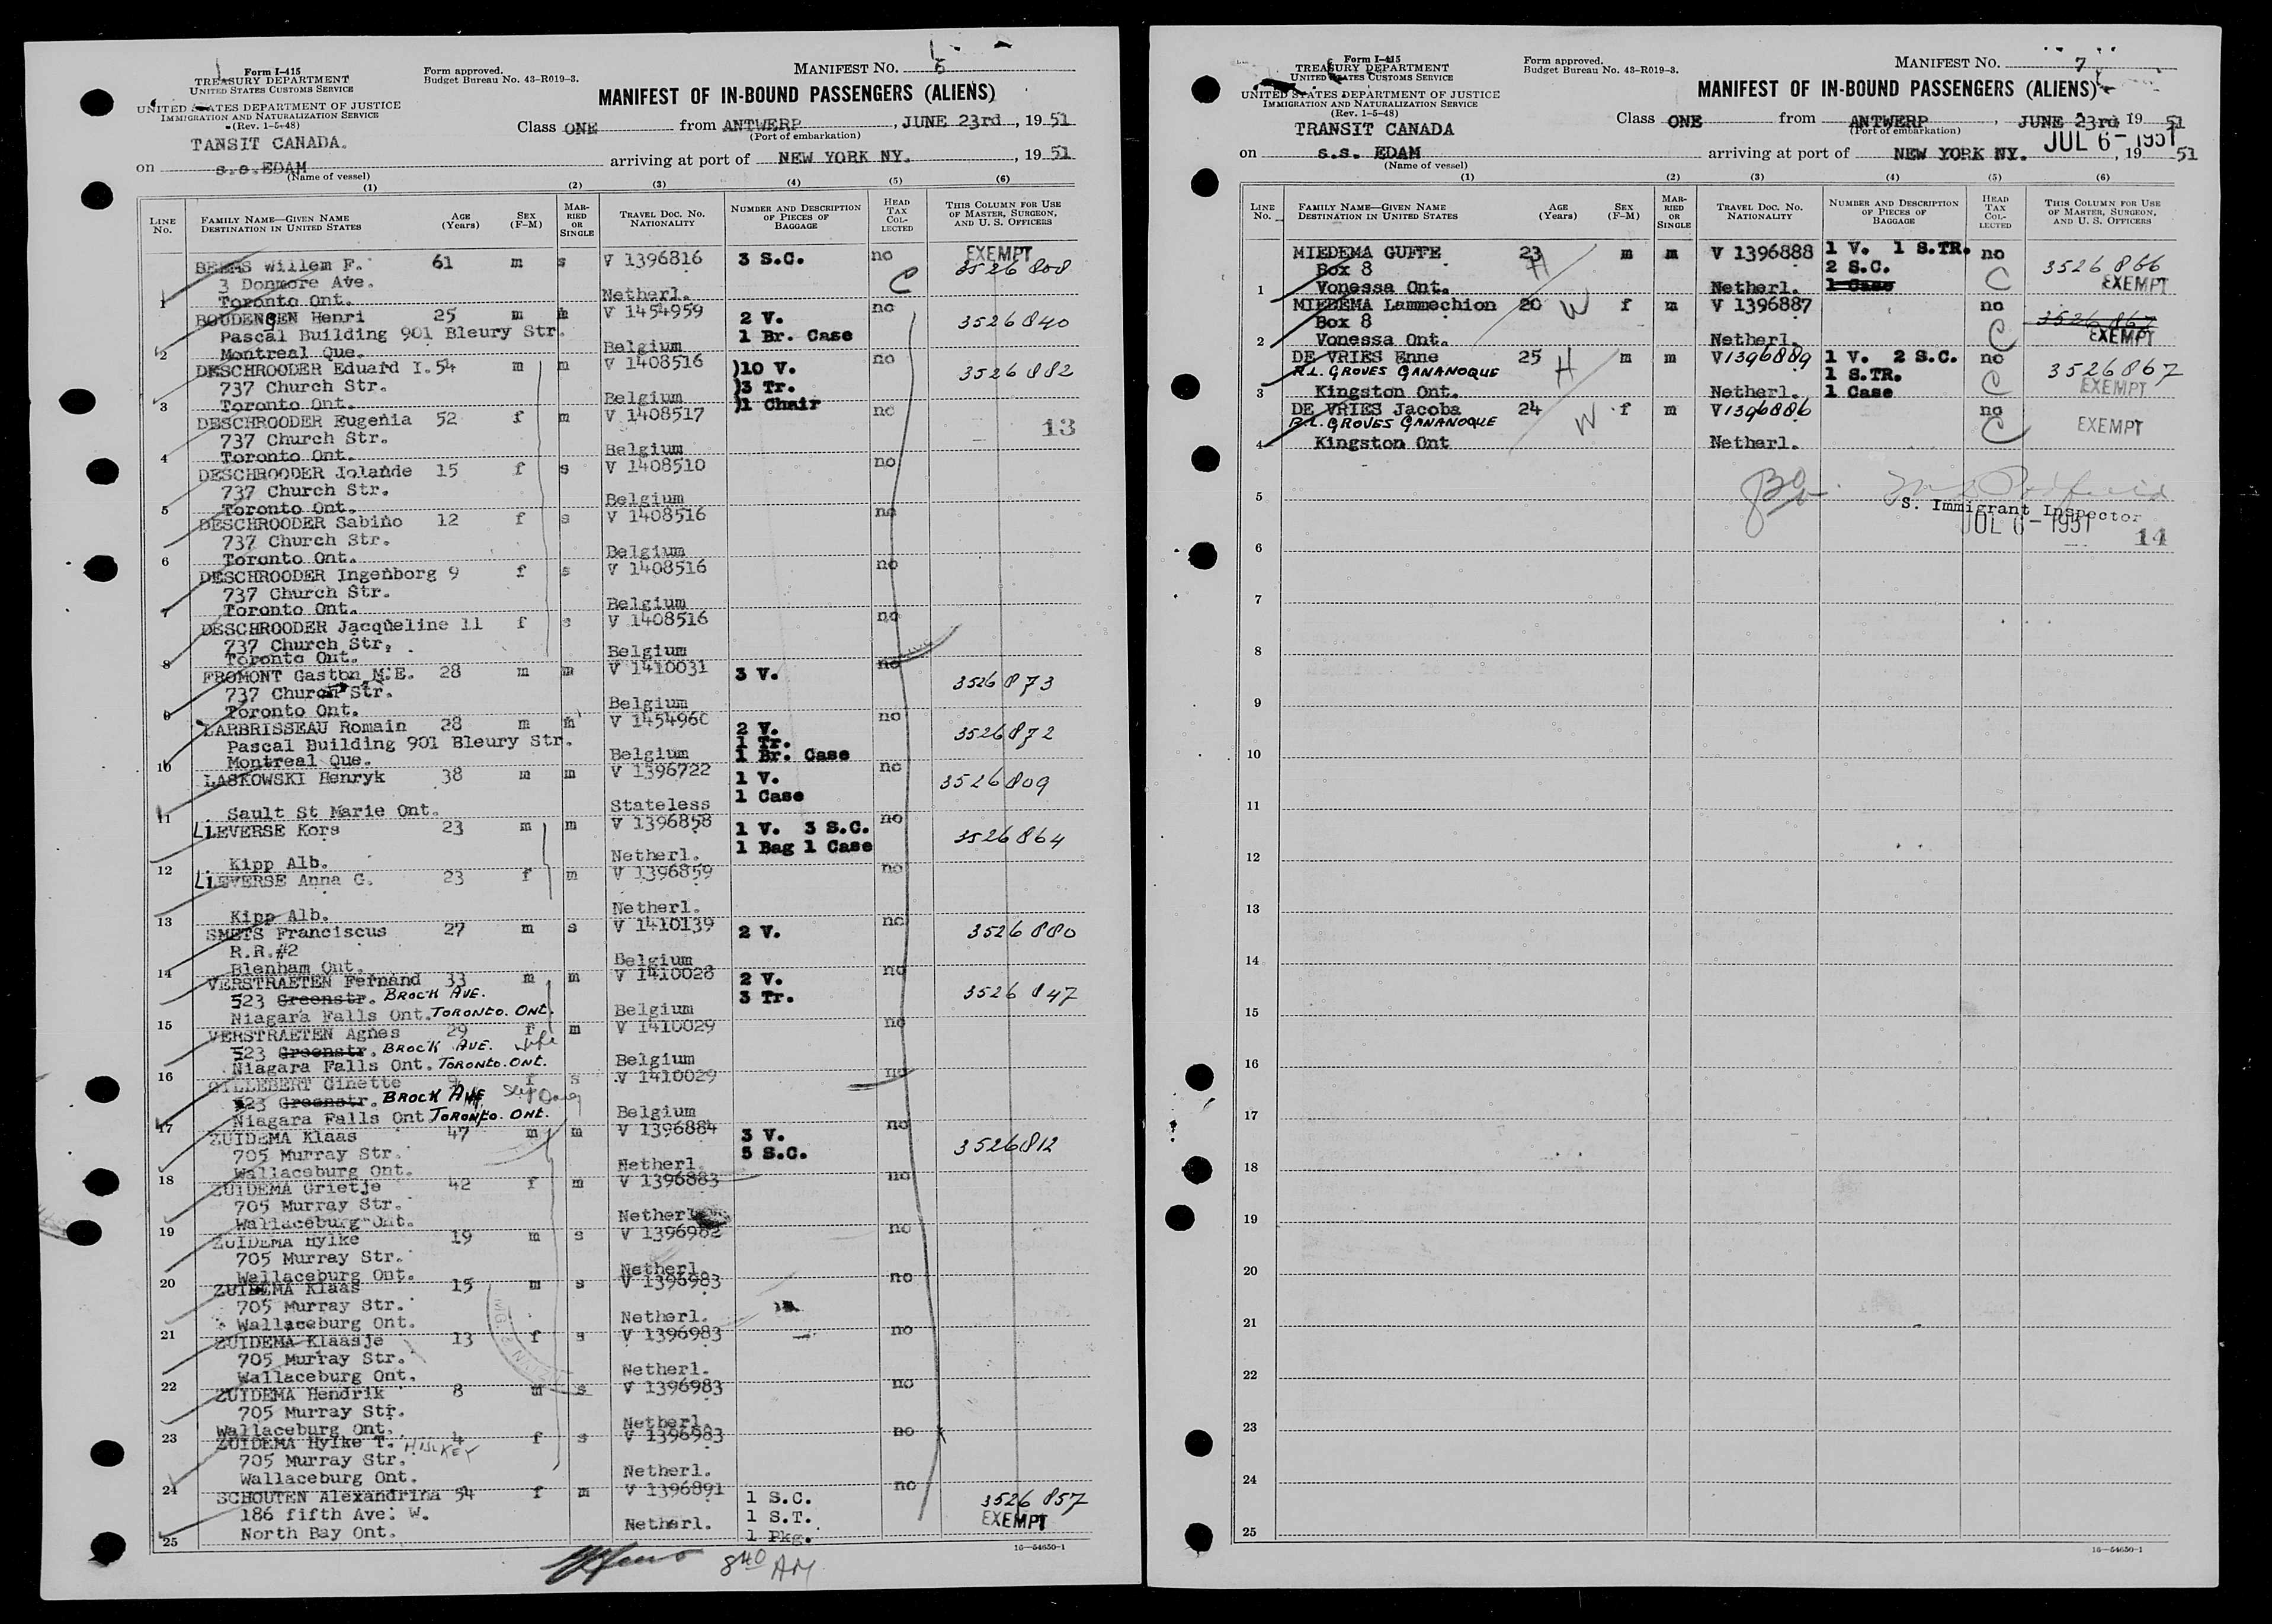 Form I-415
TREASURY DEPARTMENT
UNITED STATES CUSTOMS SERVICE
UNITED STATES DEPARTMENT OF JUSTICE
IMMIGRATION AND NATURALIZATION SERVICE
(Rev. 1-5-48)
Form approved.
Budget Bureau No. 43-R019-3.
MANIFEST NO. 6
MANIFEST OF IN-BOUND PASSENGERS (ALIENS)
TANSIT CANADA.
Class ONE from ANTWERP, JUNE 23rd, 1951
(Port of embarkation)
on s.s.EDAM arriving at port of NEW YORK NY., 1951
(Name of vessel)
(1) (2) (3) (4) (5) (6)
LINE No. FAMILY NAME—GIVEN NAME DESTINATION IN UNITED STATES AGE (Years) SEX (F-M) MARRIED OR SINGLE TRAVEL DOC. No. NATIONALITY NUMBER AND DESCRIPTION OF PIECES OF BAGGAGE HEAD TAX COLLECTED THIS COLUMN FOR USE OF MASTER, SURGEON, AND U. S. OFFICERS
BEEMS Willem F. 61 m s V 1396816 3 S.C. no EXEMPT
3 Donmore Ave. C 3526 808
1 Toronto Ont. Netherl.
BOUDENGEN Henri 25 m m V 1454959 2 V. no 3526840
Pascal Building 901 Bleury Str. 1 Br. Case
2 Montreal Que. Belgium
DESCHROODER Eduard I. 54 m m V 1408516 )10 V. no 3526 882
737 Church Str. )3 Tr.
3 Toronto Ont. Belgium )1 Chair
DESCHROODER Eugenia 52 f m V 1408517 no 13
737 Church Str.
4 Toronto Ont. Belgium
DESCHROODER Jolande 15 f s V 1408510 no
737 Church Str.
5 Toronto Ont. Belgium
DESCHROODER Sabino 12 f s V 1408516 no
737 Church Str.
6 Toronto Ont. Belgium
DESCHROODER Ingenborg 9 f s V 1408516 no
737 Church Str.
7 Toronto Ont. Belgium
DESCHROODER Jacqueline 11 f s V 1408516 no
737 Church Str.
8 Toronto Ont. Belgium
FROMONT Gaston M.E. 28 m m V 1410031 3 V. no 3526873
737 Church Str.
9 Toronto Ont. Belgium
LARBRISSEAU Romain 28 m m V 1454960 2 V. no 3526872
Pascal Building 901 Bleury Str. 1 Tr.
10 Montreal Que. Belgium 1 Br. Case
LASKOWSKI Henryk 38 m m V 1396722 1 V. no 3526809
1 Case
11 Sault St Marie Ont. Stateless
LIEVERSE Kors 23 m m V 1396858 1 V. 3 S.C. no 3526864
1 Bag 1 Case
12 Kipp Alb. Netherl.
LIEVERSE Anna G. 23 f m V 1396859 no
13 Kipp Alb. Netherl.
SMETS Franciscus 27 m s V 1410139 2 V. no 3526880
R.R.#2
14 Blenham Ont. Belgium
VERSTRAETEN Fernand 33 m m V 1410028 2 V. no 3526847
523 Greenstr. BROCK AVE. 3 Tr.
15 Niagara Falls Ont. TORONTO. ONT. Belgium
VERSTRAETEN Agnes 29 f m V 1410029 no
523 Greenstr. BROCK AVE. wife
16 Niagara Falls Ont. TORONTO. ONT. Belgium
GILLEBERT Ginette f s V 1410029 no
523 Greenstr. BROCK AVE
17 Niagara Falls Ont TORONTO. ONT. Belgium
ZUIDEMA Klaas 47 m m V 1396884 3 V. no 3526812
705 Murray Str. 5 S.C.
18 Wallaceburg Ont. Netherl.
ZUIDEMA Grietje 42 f m V 1396883 no
705 Murray Str.
19 Wallaceburg Ont. Netherl.
ZUIDEMA Hylke 19 m s V 1396982 no
705 Murray Str.
20 Wallaceburg Ont. Netherl.
ZUIDEMA Klaas 15 m s V 1396983 no
705 Murray Str.
21 Wallaceburg Ont. Netherl.
ZUIDEMA Klaasje 13 f s V 1396983 no
705 Murray Str.
22 Wallaceburg Ont. Netherl.
ZUIDEMA Hendrik 8 m s V 1396983 no
705 Murray Str.
23 Wallaceburg Ont. Netherl.
ZUIDEMA Hylke T. 4 f s V 1396983 no
705 Murray Str.
24 Wallaceburg Ont. Netherl.
SCHOUTEN Alexandrina 54 f m V 1396891 1 S.C. no 3526 857
186 fifth Ave: W. 1 S.T. EXEMPT
25 North Bay Ont. Netherl. 1 Pkg.
16—54650-1
8 40 AM
Form I-415
TREASURY DEPARTMENT
UNITED STATES CUSTOMS SERVICE
UNITED STATES DEPARTMENT OF JUSTICE
IMMIGRATION AND NATURALIZATION SERVICE
(Rev. 1-5-48)
Form approved.
Budget Bureau No. 43-R019-3.
MANIFEST NO. 7
MANIFEST OF IN-BOUND PASSENGERS (ALIENS)
TRANSIT CANADA
Class ONE from ANTWERP, JUNE 23rd, 1951
(Port of embarkation)
JUL 6-1951
on s.s. EDAM arriving at port of NEW YORK NY., 1951
(Name of vessel)
(1) (2) (3) (4) (5) (6)
LINE No. FAMILY NAME—GIVEN NAME DESTINATION IN UNITED STATES AGE (Years) SEX (F-M) MARRIED OR SINGLE TRAVEL DOC. No. NATIONALITY NUMBER AND DESCRIPTION OF PIECES OF BAGGAGE HEAD TAX COLLECTED THIS COLUMN FOR USE OF MASTER, SURGEON, AND U. S. OFFICERS
MIEDEMA GUFFE 23 m m V 1396888 1 V. 1 S.TR. no
Box 8 H 2 S.C. C 3526866
1 Vonessa Ont. Netherl. 1 Case EXEMPT
MIEDEMA Lammechion 20 W f m V 1396887 no
Box 8 C 3526867
2 Vonessa Ont. Netherl. EXEMPT
DE VRIES Enne 25 H m m V1396889 1 V. 2 S.C. no
R.L. GROVES GANANOQUE 1 S.TR. C 3526867
3 Kingston Ont. Netherl. 1 Case EXEMPT
DE VRIES Jacoba 24 W f m V1396886 no
R.L. GROVES GANANOQUE C EXEMPT
4 Kingston Ont Netherl.
5
S. Immigrant Inspector
JUL 6-1951
14
6
7
8
9
10
11
12
13
14
15
16
17
18
19
20
21
22
23
24
25
16—54650-1